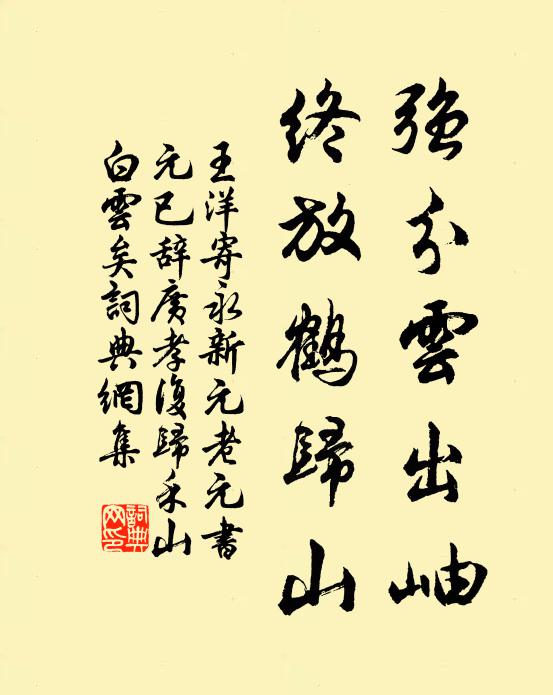 強分雲出岫
終放鶴歸山
王洋寄永新元老元書
元已辞廣孝復歸禾山
白雲矣詞典網集
詞典
网印